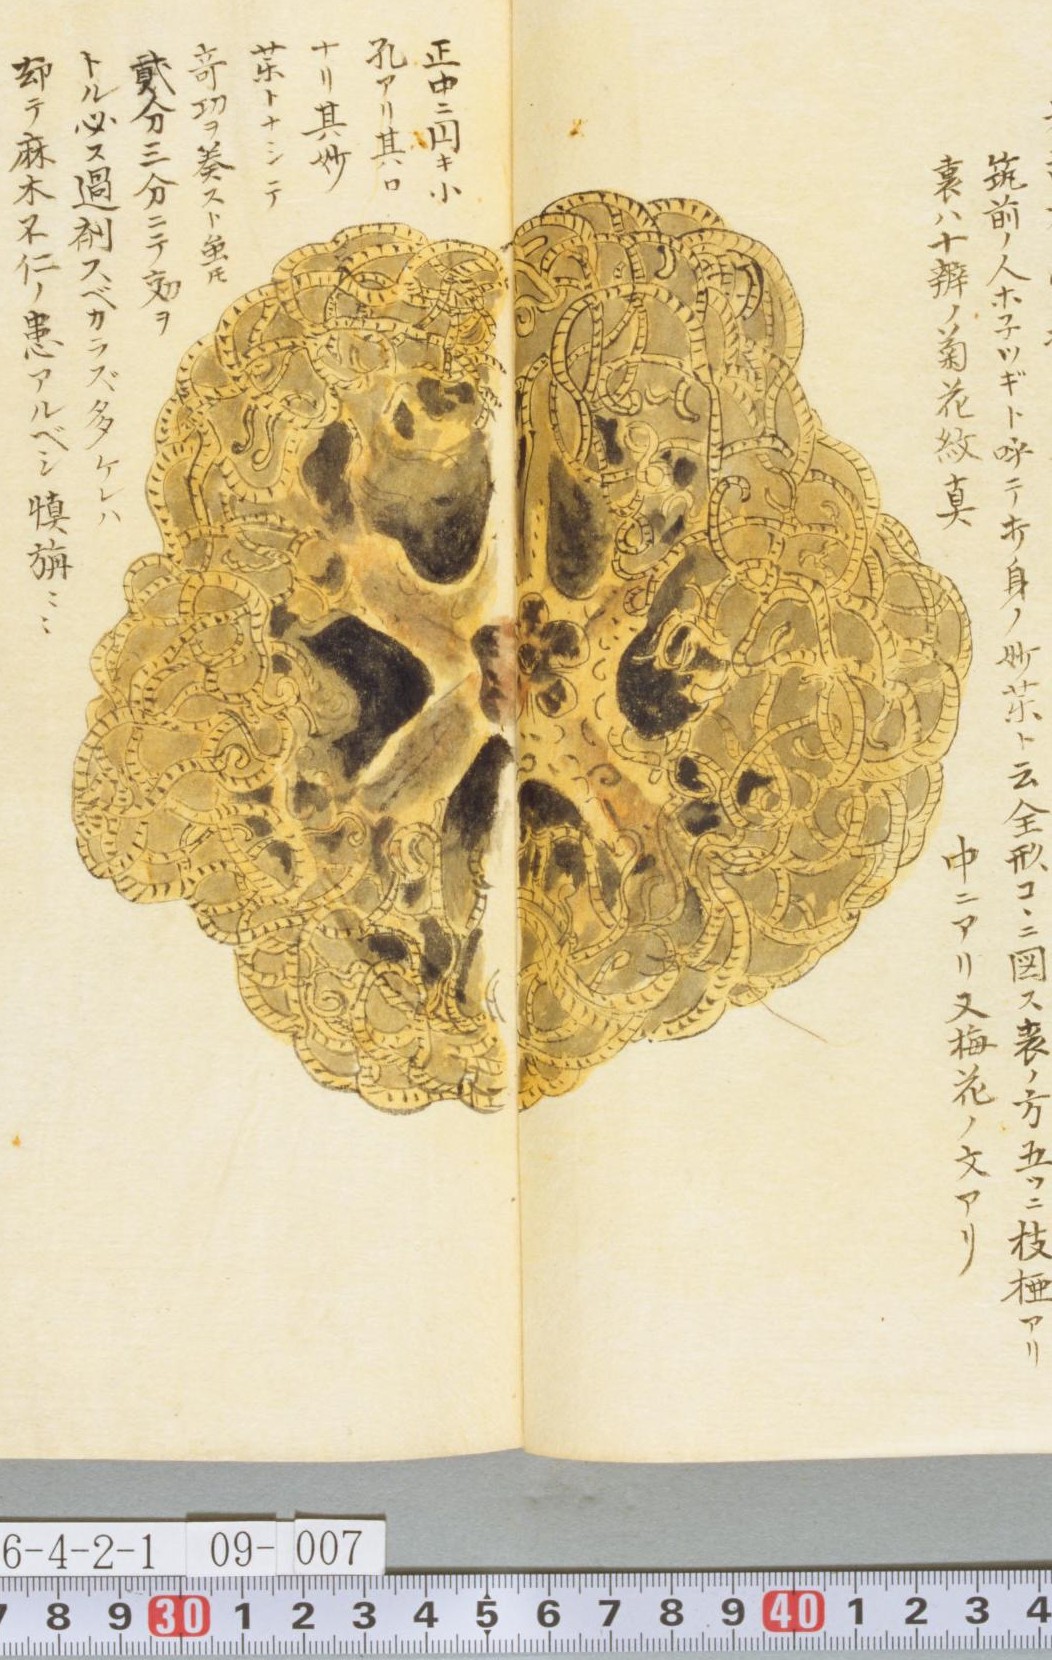 筑前ノ人ホ子ツギト呼テ
身ノ妙薬ト云全形コヽニ図ス表ノ方五ツニ枝椏アリ
裏ハ十辧ノ菊花紋真
中ニアリ又梅花ノ文アリ
正中ニ円キ小
孔アリ其口
ナリ其妙
薬トナシテ
奇功ヲ奏スト虽氐
貳分三分ニテ効ヲ
トル必ス過剤スベカラズ多ケレハ
却テ麻木不仁ノ患アルベシ慎旃ミミ
6-4-2-1 09-007
7 8 9 30 1 2 3 4 5 6 7 8 9 40 1 2 3 4